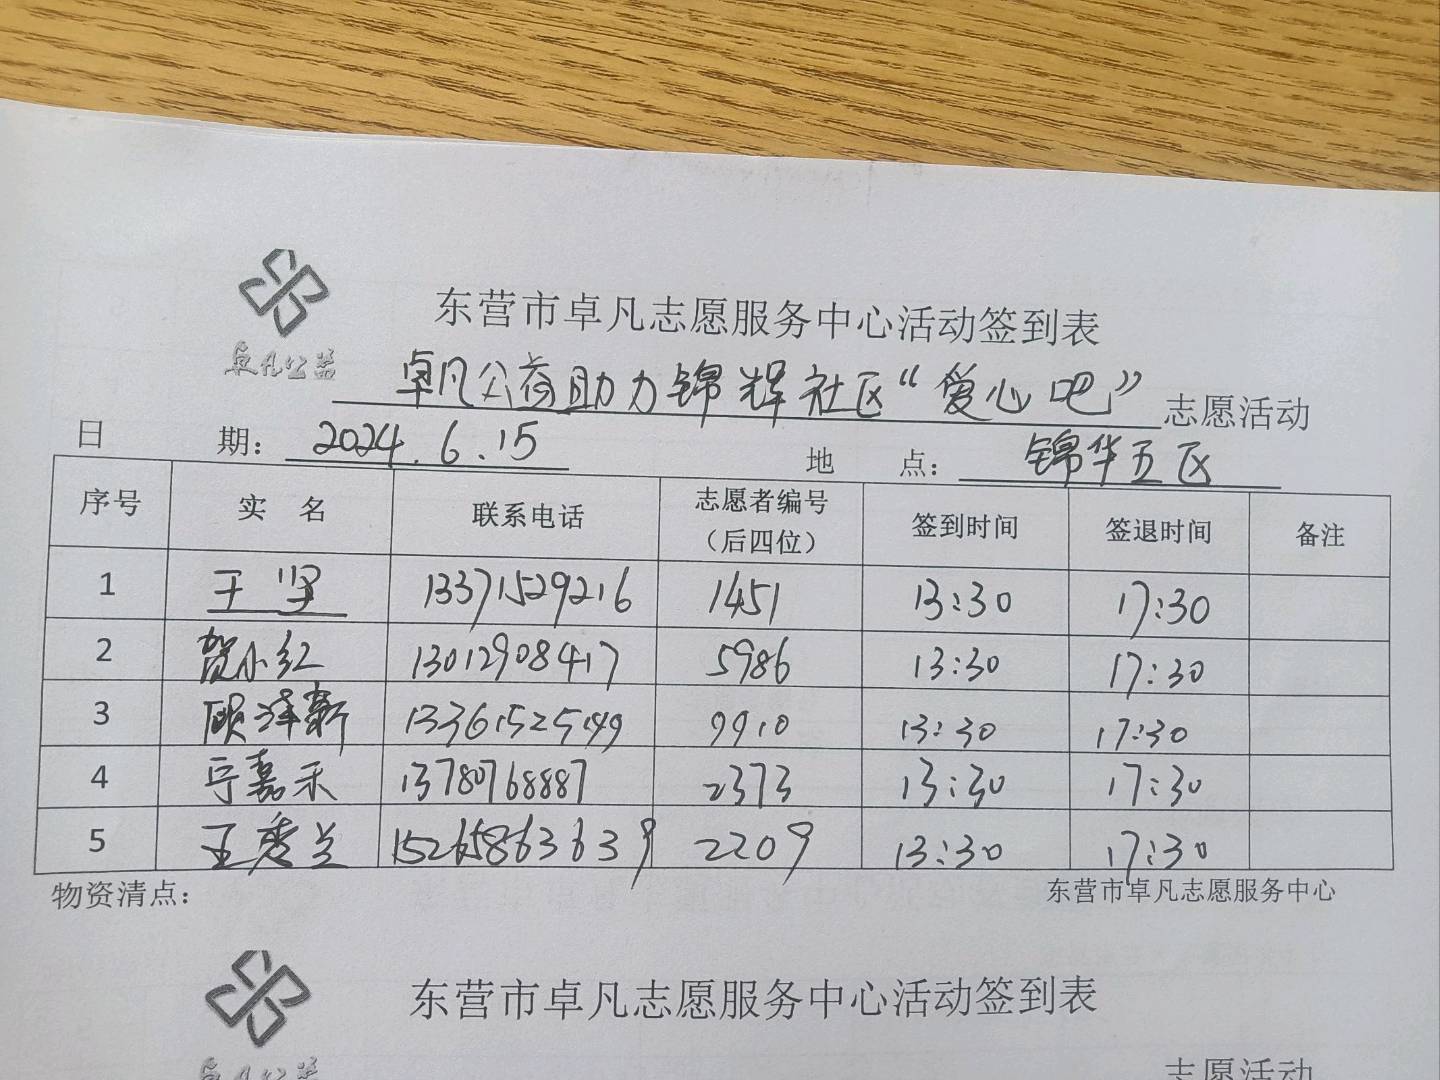 东营市卓凡志愿服务中心活动签到表
卓凡公益
卓凡公益助力锦辉社区“爱心吧” 志愿活动
日 期：2024.6.15 地 点：锦华五区
序号 实 名 联系电话 志愿者编号（后四位） 签到时间 签退时间 备注
1 于坚 13371529216 1451 13:30 17:30
2 贺小红 13012908417 5986 13:30 17:30
3 顾泽新 13361525149 9910 13:30 17:30
4 宁嘉禾 13780768887 2373 13:30 17:30
5 王秀兰 15265863639 2209 13:30 17:30
物资清点： 东营市卓凡志愿服务中心
东营市卓凡志愿服务中心活动签到表
卓凡公益
志愿活动